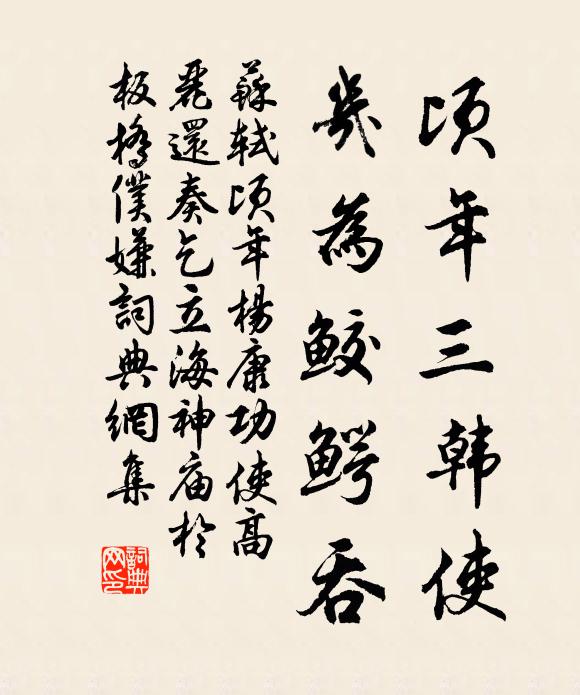 頃年三韩使
幾為鮫鰐吞
蘇軾頃年楊康功使高
麗還奏乞立海神庙於
板橋僕嫌詞典網集
詞典
网印